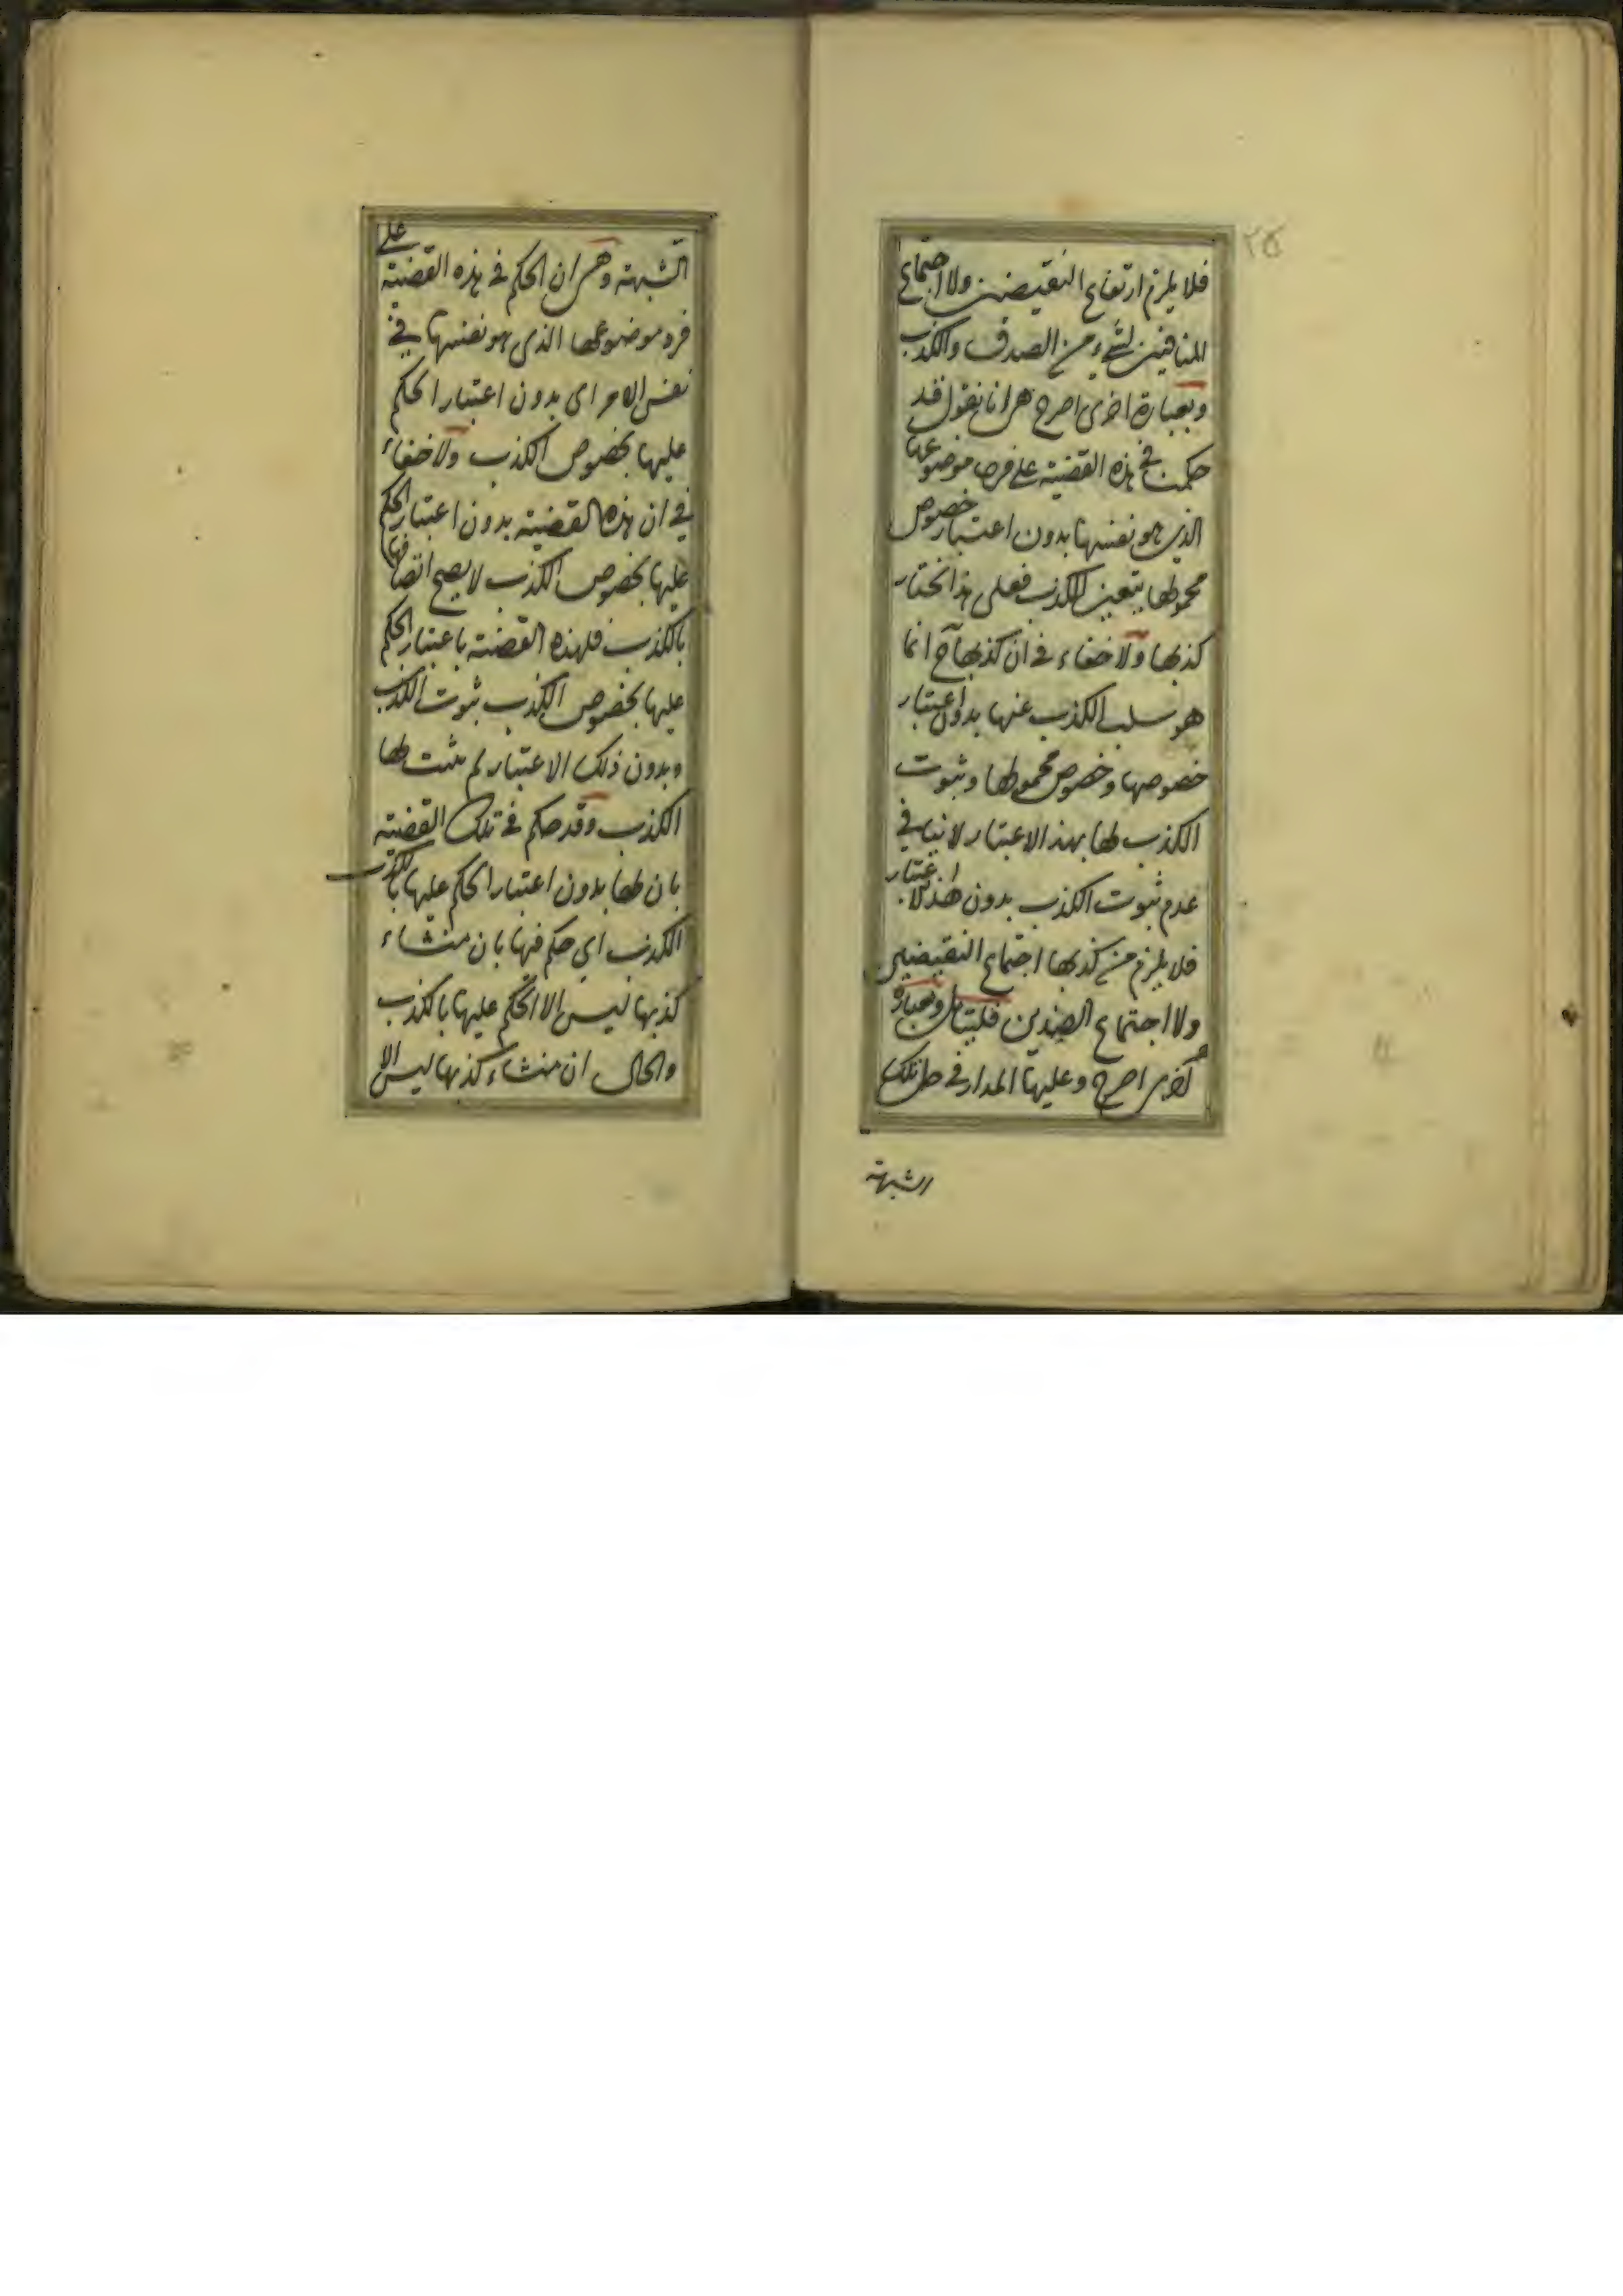 ٢٥
فلا يلزم ارتفاع النقيضين ولا اجتماع
المنافيين لشيء من الصدق والكذب
وبعبارة اخرى اصرح هى انا نقول قد
حكمت فى هذه القضية على فرد موضوعها
الذى هو نفسها بدون اعتبار خصوص
محمولها بتعين الكذب فعلى هذا نختار
كذبها ولا خفاء فى ان كذبها ح انما
هو سلب الكذب عنها بدون اعتبار
خصوصها وخصوص محمولها وثبوت
الكذب لها بهذا الاعتبار لا ينافى
عدم ثبوت الكذب بدون هذا الاعتبار
فلا يلزم من كذبها اجتماع النقيضين
ولا اجتماع الضدين فليتامل وبعبارة
اخرى اصرح وعليها المدار فى حل تلك
الشبهة
الشبهة وهى ان الحكم فى هذه القضية على
فرد موضوعها الذى هو نفسها فى
نفس الامر اى بدون اعتبار الحكم
عليها بخصوص الكذب ولا خفاء
فى ان هذه القضية بدون اعتبار الحكم
عليها بخصوص الكذب لا يصح اتصافها
بالكذب فلهذه القضية باعتبار الحكم
عليها بخصوص الكذب ثبوت الكذب
وبدون ذلك الاعتبار لم يثبت لها
الكذب وقد حكم فى تلك القضية
بان لها بدون اعتبار الحكم عليها بالكذب
الكذب اى حكم فيها بان منشاء
كذبها ليس الا الحكم عليها بالكذب
والحال ان منشاء كذبها ليس الا